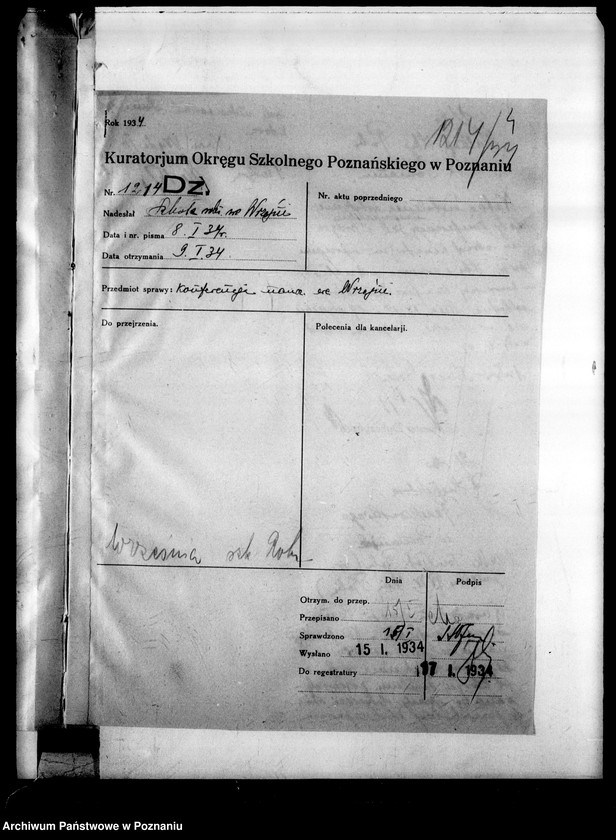 Rok 1934
1214/34
Kuratorjum Okręgu Szkolnego Poznańskiego w Poznaniu
Nr. 1214 DZ.
Nr. aktu poprzedniego
Nadesłał Szkoła we Wrześni
Data i nr. pisma 8. I 34r.
Data otrzymania 9. I. 34.
Przedmiot sprawy: Konferencja naucz. we Wrześni.
Do przejrzenia.
Polecenia dla kancelarji.
Września szk. Roln
Dnia
Podpis
Otrzym. do przep.
Przepisano 15/I
Sprawdzono 15/I
Wysłano 15 I. 1934
Do regestratury 17 I. 1934
Archiwum Państwowe w Poznaniu